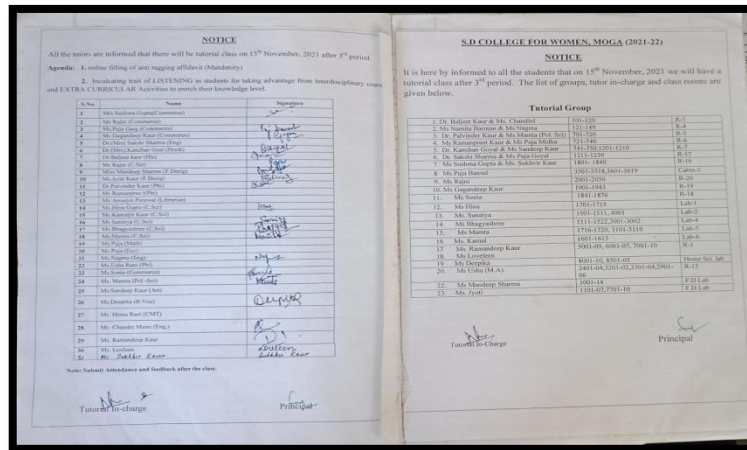 NOTICE
All the tutors are informed that there will be tutorial class on 15th November, 2021 after 3rd period
Agenda: 1. online filling of anti ragging affidavit (Mandatory)
2. Inculcating trait of LISTENING in students for taking advantage from interdisciplinary
and EXTRA CURRICULAR Activities to enrich their knowledge level.
S.No. Name Signature
1 Mrs Sushma Gupta(Commerce)
2 Ms Rajni (Commerce)
3 Ms.Puja Garg (Commerce)
4 Ms Gagandeep Kaur (Commerce)
5 Dr.(Mrs) Sakshi Sharma (Eng)
6 Dr.(Mrs) Kanchan Goyal (Hindi)
7 Dr.Baljeet kaur (His)
8 Ms Rajni (C.Sci)
9 Miss Mandeep Sharma (F.Desig)
10 Ms.Jyoti Kaur (F.Desig)
11 Dr.Palvinder Kaur (Pbi)
12 Ms Ramanpreet (Pbi)
13 Mr (Librarian)
14 Ms.Hina Gupta (C.Sci)
15 Ms.Kamaljit Kaur (C.Sci)
16 Ms Sunaiya (C.Sci)
17 Ms Bhagyashree (C.Sci)
18 Ms Mamta (C.Sci)
19 Ms Puja (Math)
20 Ms Puja (Eco)
21 Ms Nagma (Eng)
22 Ms Usha Rani (Pbi)
23 Ms Sonia (Commerce)
24 Ms. Mamta (Pol.-Sci)
25 Ms Sandeep Kaur (Art)
26 Ms Deepika (B.Voc)
27 Ms. Hema Rani (CMT)
28 Mr. Chander Mani (Eng.)
29 Ms. Ramandeep Kaur
30 Ms. Loveleen
31 Ms Sukhbir Kaur Sukhbir Kaur
Note: Submit Attendance and feedback after the class.
Tutorial In-charge Principal
S.D COLLEGE FOR WOMEN, MOGA (2021-22)
NOTICE
It is here by informed to all the students that on 15th November, 2021 we will have a
tutorial class after 3rd period. The list of groups, tutor in-charge and class rooms are
given below.
Tutorial Group
1. Dr. Baljeet Kaur & Ms. Chandni 101-120 R-3
2. Ms Namita Burman & Ms Nagma 121-149 R-4
3. Dr. Palvinder Kaur & Ms Mamta (Pol. Sci) 701-720 R-5
4. Ms Ramanpreet Kaur & Ms Puja Midha 721-740 R-6
5. Dr. Kanchan Goyal & Ms Sandeep Kaur 741-750,1201-1210 R-7
6. Dr. Sakshi Sharma & Ms Puja Goyal 1211-1230 R-17
7. Ms Sushma Gupta & Ms. Sukhvir Kaur 1801-1840 R-16
8 Ms Puja Bansal 3501-3518,3601-3619 Cabin-1
9. Ms Rajni 2001-2050 R-20
10. Ms Gagandeep Kaur 1901-1943 R-19
11. Ms Sonia 1841-1876 R-18
12. Ms Hina 1701-1715 Lab-1
13. Ms. Sunaiya 1501-1511, 4001 Lab-2
14 Ms Bhagyashree 1511-1522,3001-3002 Lab-4
15. Ms Mamta 1716-1720, 3101-3110 Lab-5
16. Ms. Kamal 1601-1613 Lab-6
17 Ms. Ramandeep Kaur 5001-09, 6001-07, 7001-10 R-1
18. Ms Loveleen
19 Ms Deepika 8001-10, 8501-05 Home Sci. lab
20. Ms Usha (M.A) 2401-04,3201-02,3301-04,2901-
06 R-15
22. Ms Mandeep Sharma 1001-14 F.D Lab
23. Ms. Jyoti 1101-07,7701-10 F.D Lab
Tutorial In-Charge Principal